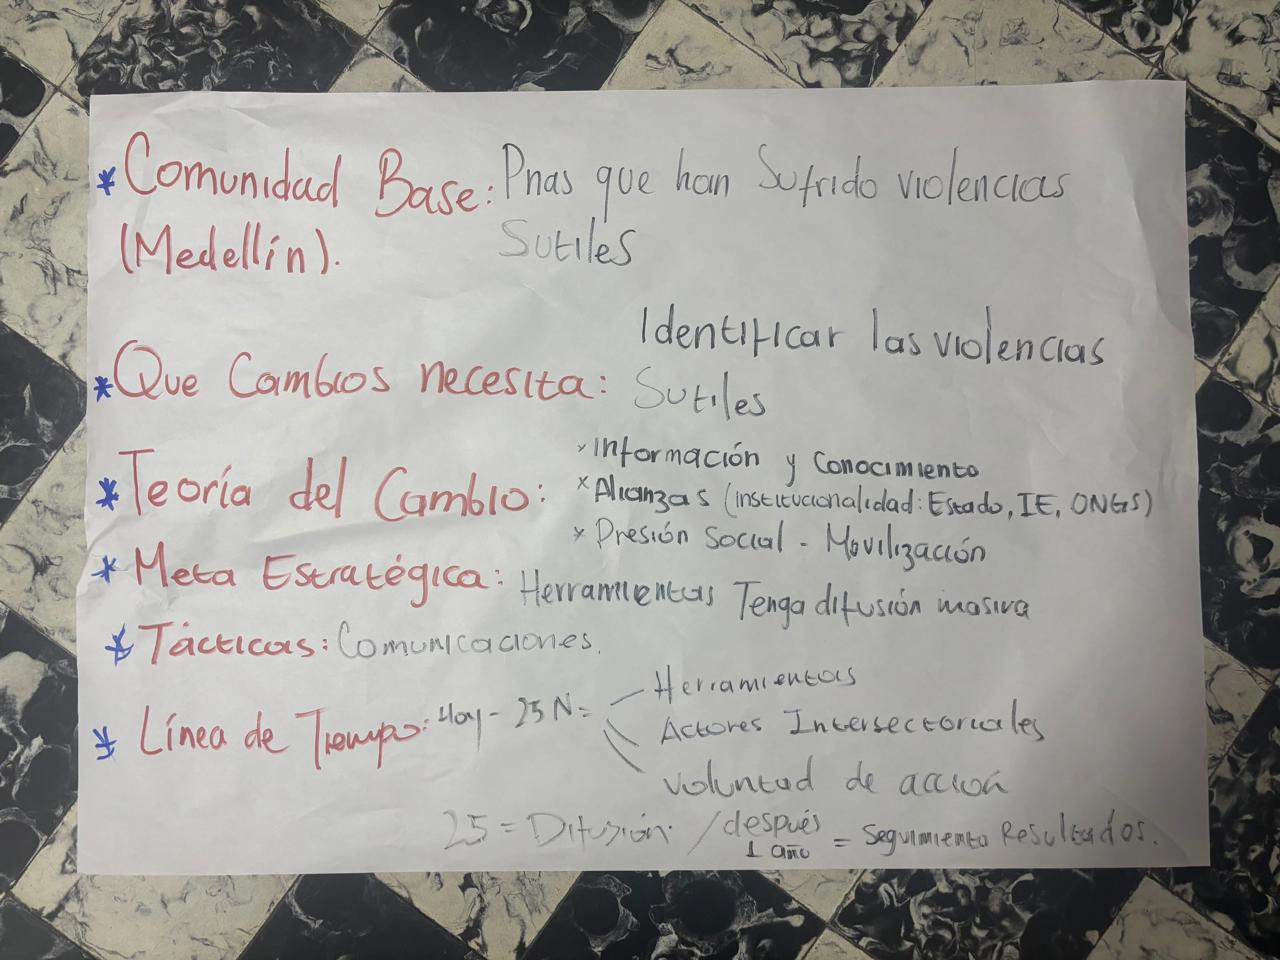 * Comunidad Base: Pnas que han Sufrido violencias
(Medellín). Sutiles
Identificar las violencias
* Que Cambios necesita: Sutiles
x Información y Conocimiento
* Teoría del Cambio: x Alianzas (institucionalidad: Estado, IE, ONGS)
x Presión Social - Movilización
* Meta Estratégica: Herramientas Tenga difusión masiva
* Tácticas: Comunicaciones.
Herramientas
* Línea de Tiempo: Hoy - 25 N = Actores Intersectoriales
Voluntad de acción
25 = Difusión / después = Seguimiento Resultados.
1 año